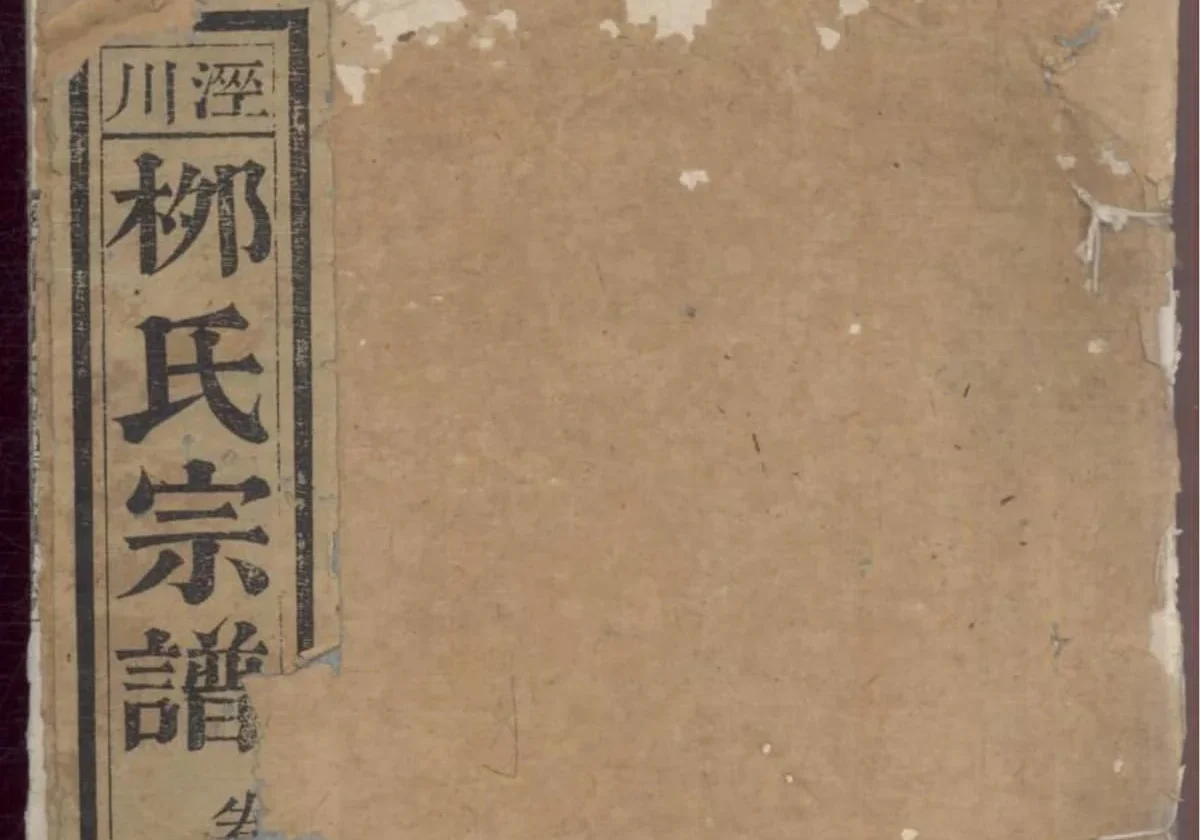 涇川
栁氏宗譜